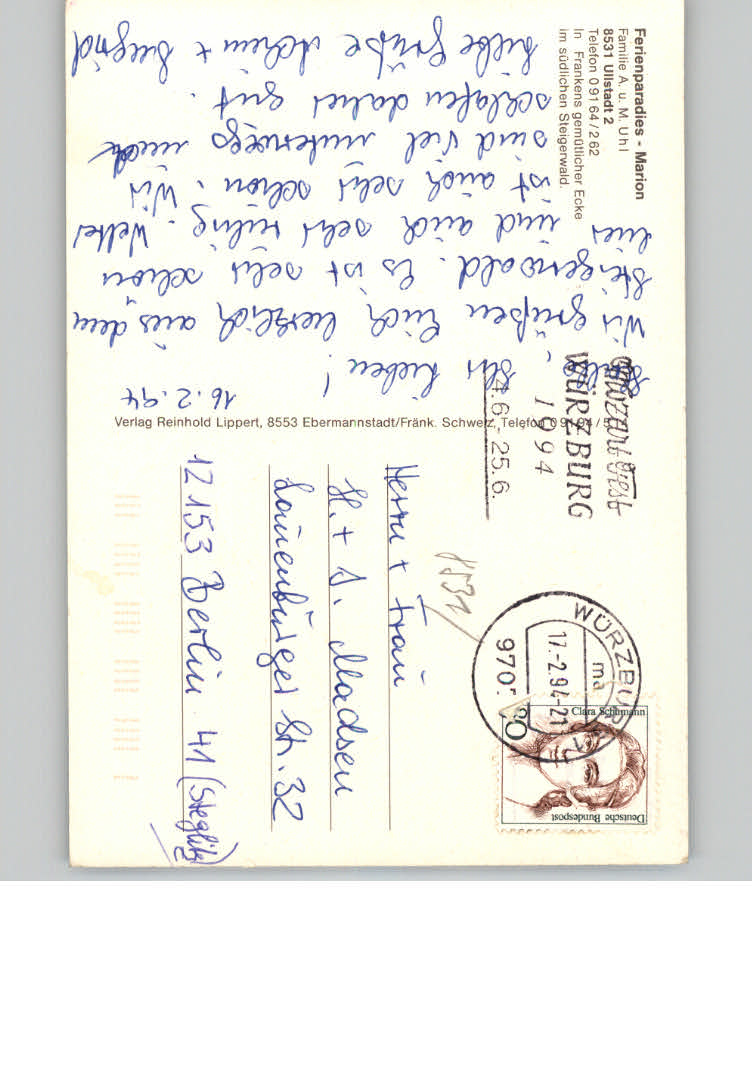 Ferienparadies - Marion
Familie A. u. M. Uhl
8531 Ullstadt 2
Telefon 0 91 64 / 2 62
In Frankens gemütlicher Ecke
im südlichen Steigerwald.
16.2.94
Ihr Lieben!
Wir grüßen Euch herzlich aus dem
Steigerwald. Es ist sehr schön
hier und auch sehr ruhig. Wetter
ist auch sehr schön. Wir
sind viel unterwegs und
schlafen daher gut.
Liebe Grüße Achim + Siegrid
Verlag Reinhold Lippert, 8553 Ebermannstadt/Fränk. Schweiz, Telefon 0 91 94 / 5
Mozartfest
WÜRZBURG
1994
4.6.-25.6.
WÜRZBURG 1
17.-2.94-21
ma
970
Deutsche Bundespost
Clara Schumann
80
8531
Herrn + Frau
H. + I. Madsen
Lauenburger Str. 32
12153 Berlin 41 (Steglitz)